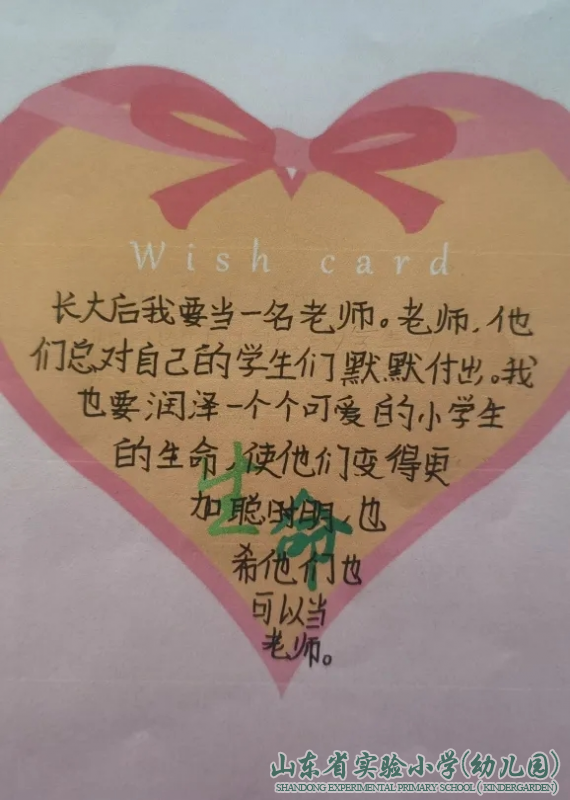 Wish card
长大后我要当一名老师。老师，他
们总对自己的学生们默默付出。我
也要润泽一个个可爱的小学生
的生命，使他们变得更
加聪明，也
希他们也
可以当
老师。
生命
山东省实验小学(幼儿园)
SHANDONG EXPERIMENTAL PRIMARY SCHOOL ( KINDERGARDEN)